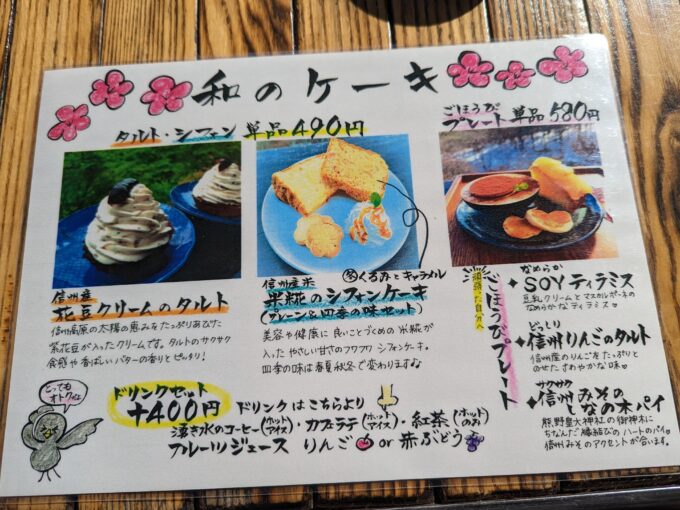 和のケーキ
タルト・シフォン 単品490円
ごほうび
プレート 単品580円
信州産
花豆クリームのタルト
信州高原の太陽の恵みをたっぷりあびた
紫花豆が入ったクリームです。タルトのサクサク
食感や香ばしいバターの香りとピッタリ!
冬 くるみとキャラメル
信州産米
米糀のシフォンケーキ
(プレーン&四季の味セット)
美容や健康に良いことづくめの米糀が
入ったやさしい甘さのフワフワシフォンケーキ。
四季の味は春夏秋冬で変わりますよ
頑張った自分へ
ごほうびプレート
なめらか
SOYティラミス
豆乳クリームとマスカルポーネの
なめらかなティラミス
どっしり
信州りんごのタルト
信州産のりんごをたっぷりと
のせたさわやかな味
サクサク
信州みその
しなの木パイ
熊野皇大神社の御神木に
ちなんだ縁結びのハートのパイ。
信州みそのアクセントが合います。
とっても
オトクよ
ドリンクセット
+400円
ドリンクはこちらより
湧き水のコーヒー(ホット/アイス)・カフェラテ(ホット/アイス)・紅茶(ホットのみ)
フルーツジュース りんご or 赤ぶどう